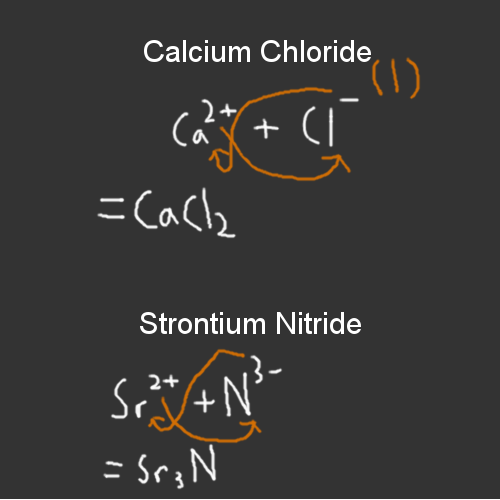 Calcium Chloride
Ca²⁺ + Cl⁻ (1)
=CaCl₂
Strontium Nitride
Sr²⁺ + N³⁻
= Sr₃N